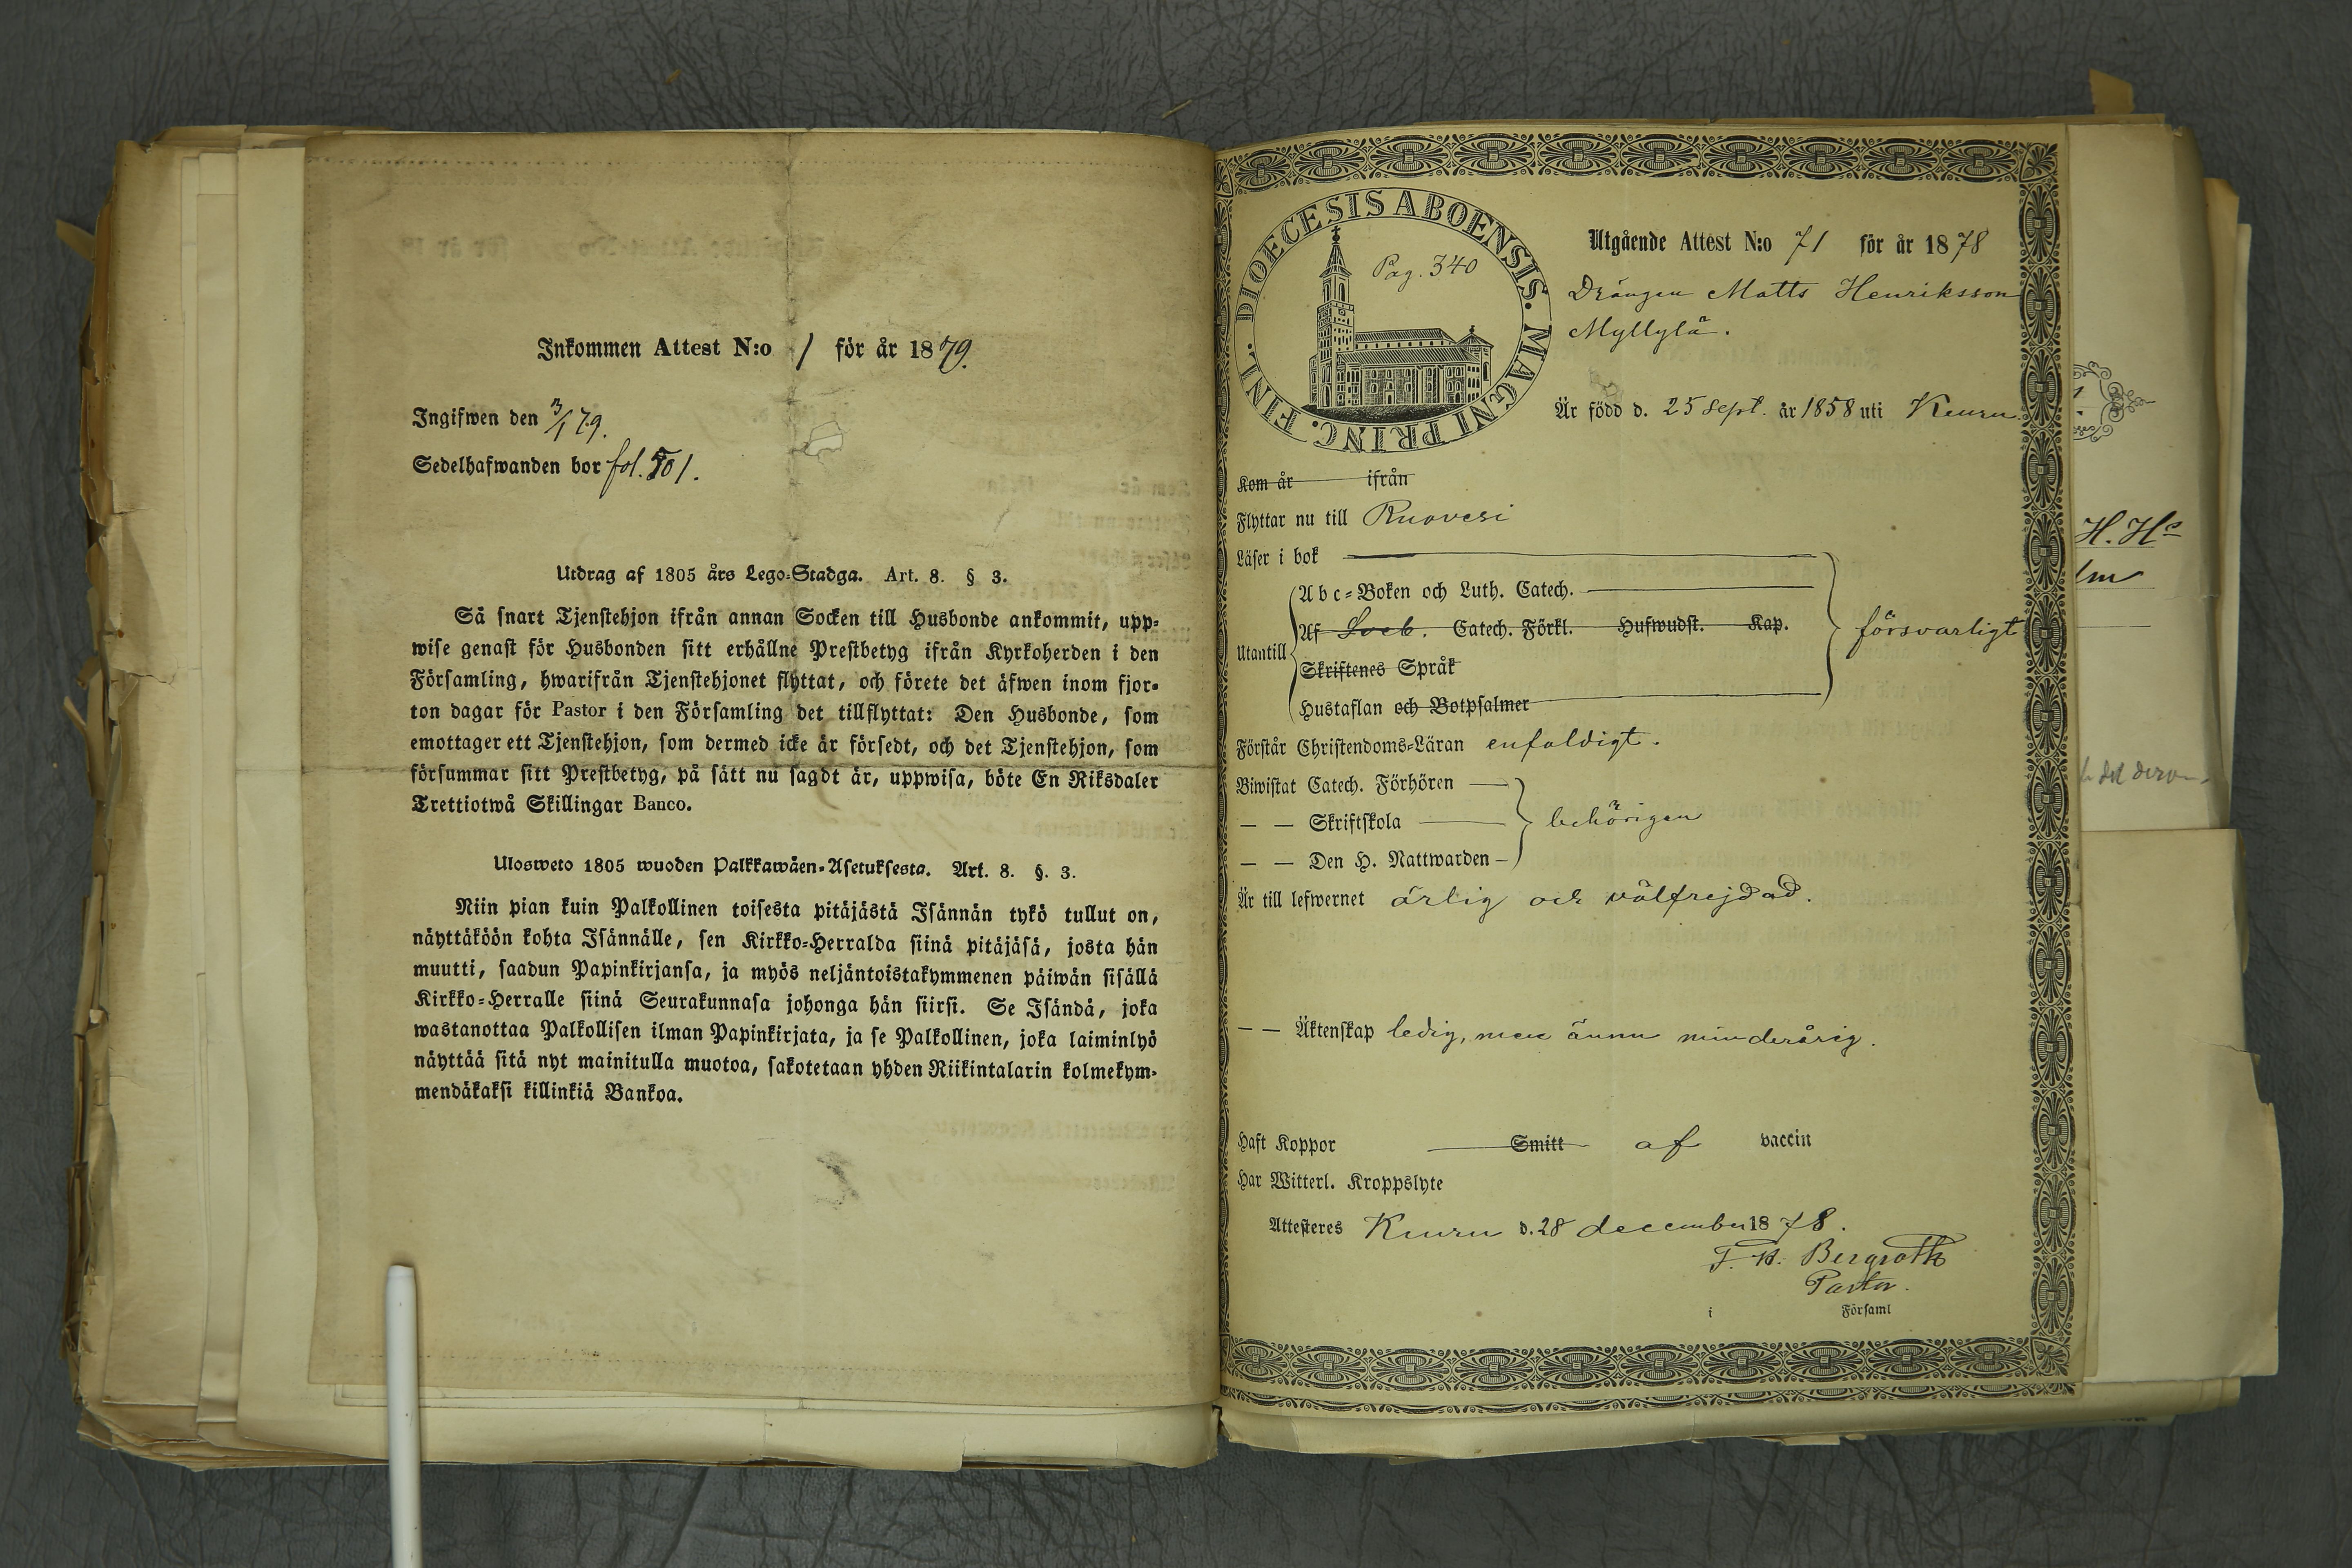 Inkommen Attest N:o 1 för år 1879.
Ingifwen den 3/1 79.
Sedelhafwanden bor fol. 501.
Utdrag af 1805 års Lego-Stadga. Art. 8. § 3.
Så snart Tjenstehjon ifrån annan Socken till Husbonde ankommit, upp-
wise genast för Husbonden sitt erhållne Prestbetyg ifrån Kyrkoherden i den
Församling, hwarifrån Tjenstehjonet flyttat, och förete det äfwen inom fjor-
ton dagar för Pastor i den Församling det tillflyttat: Den Husbonde, som
emottager ett Tjenstehjon, som dermed icke är försedt, och det Tjenstehjon, som
försummar sitt Prestbetyg, på sätt nu sagdt är, uppwisa, böte En Riksdaler
Trettiotwå Skillingar Banco.
Ulosweto 1805 wuoden Palkkawäen-Asetuksesta. Art. 8. §. 3.
Niin pian kuin Palkollinen toisesta pitäjästä Isännän tykö tullut on,
näyttäköön kohta Isännälle, sen Kirkko-Herralda siinä pitäjäsä, josta hän
muutti, saadun Papinkirjansa, ja myös neljäntoistakymmenen päiwän sisällä
Kirkko-Herralle siinä Seurakunnasa johonga hän siirsi. Se Isändä, joka
wastanottaa Palkollisen ilman Papinkirjata, ja se Palkollinen, joka laiminlyö
näyttää sitä nyt mainitulla muotoa, sakotetaan yhden Riikintalarin kolmekym-
mendäkaksi killinkiä Bankoa.
DIOECESIS ABOENSIS. MAGNI PRINC. FINL.
Pag. 340
Utgående Attest N:o 71 för år 1878
Drängen Matts Henriksson
Myllylä.
Är född d. 25 Sept. år 1858 uti Keuru
Kom år ifrån
Flyttar nu till Ruovesi
Läser i bok
Utantill
Abc-Boken och Luth. Catech.
Af Sveb. Catech. Förkl. Hufwudst. Kap.
försvarligt
Skriftenes Språk
Hustaflan och Botpsalmer
Förstår Christendoms-Läran enfaldigt.
Biwistat Catech. Förhören
— — Skriftskola
behörigen
— — Den H. Nattwarden
Är till lefwernet ärlig och välfrejdad.
— — Äktenskap ledig, men ännu minderårig.
Haft Koppor Smitt af vaccin
Har Witterl. Kroppslyte
Attesteres Keuru d. 28 december 1878.
F. H. Bergroth
Pastor.
i Församl
H. Hr